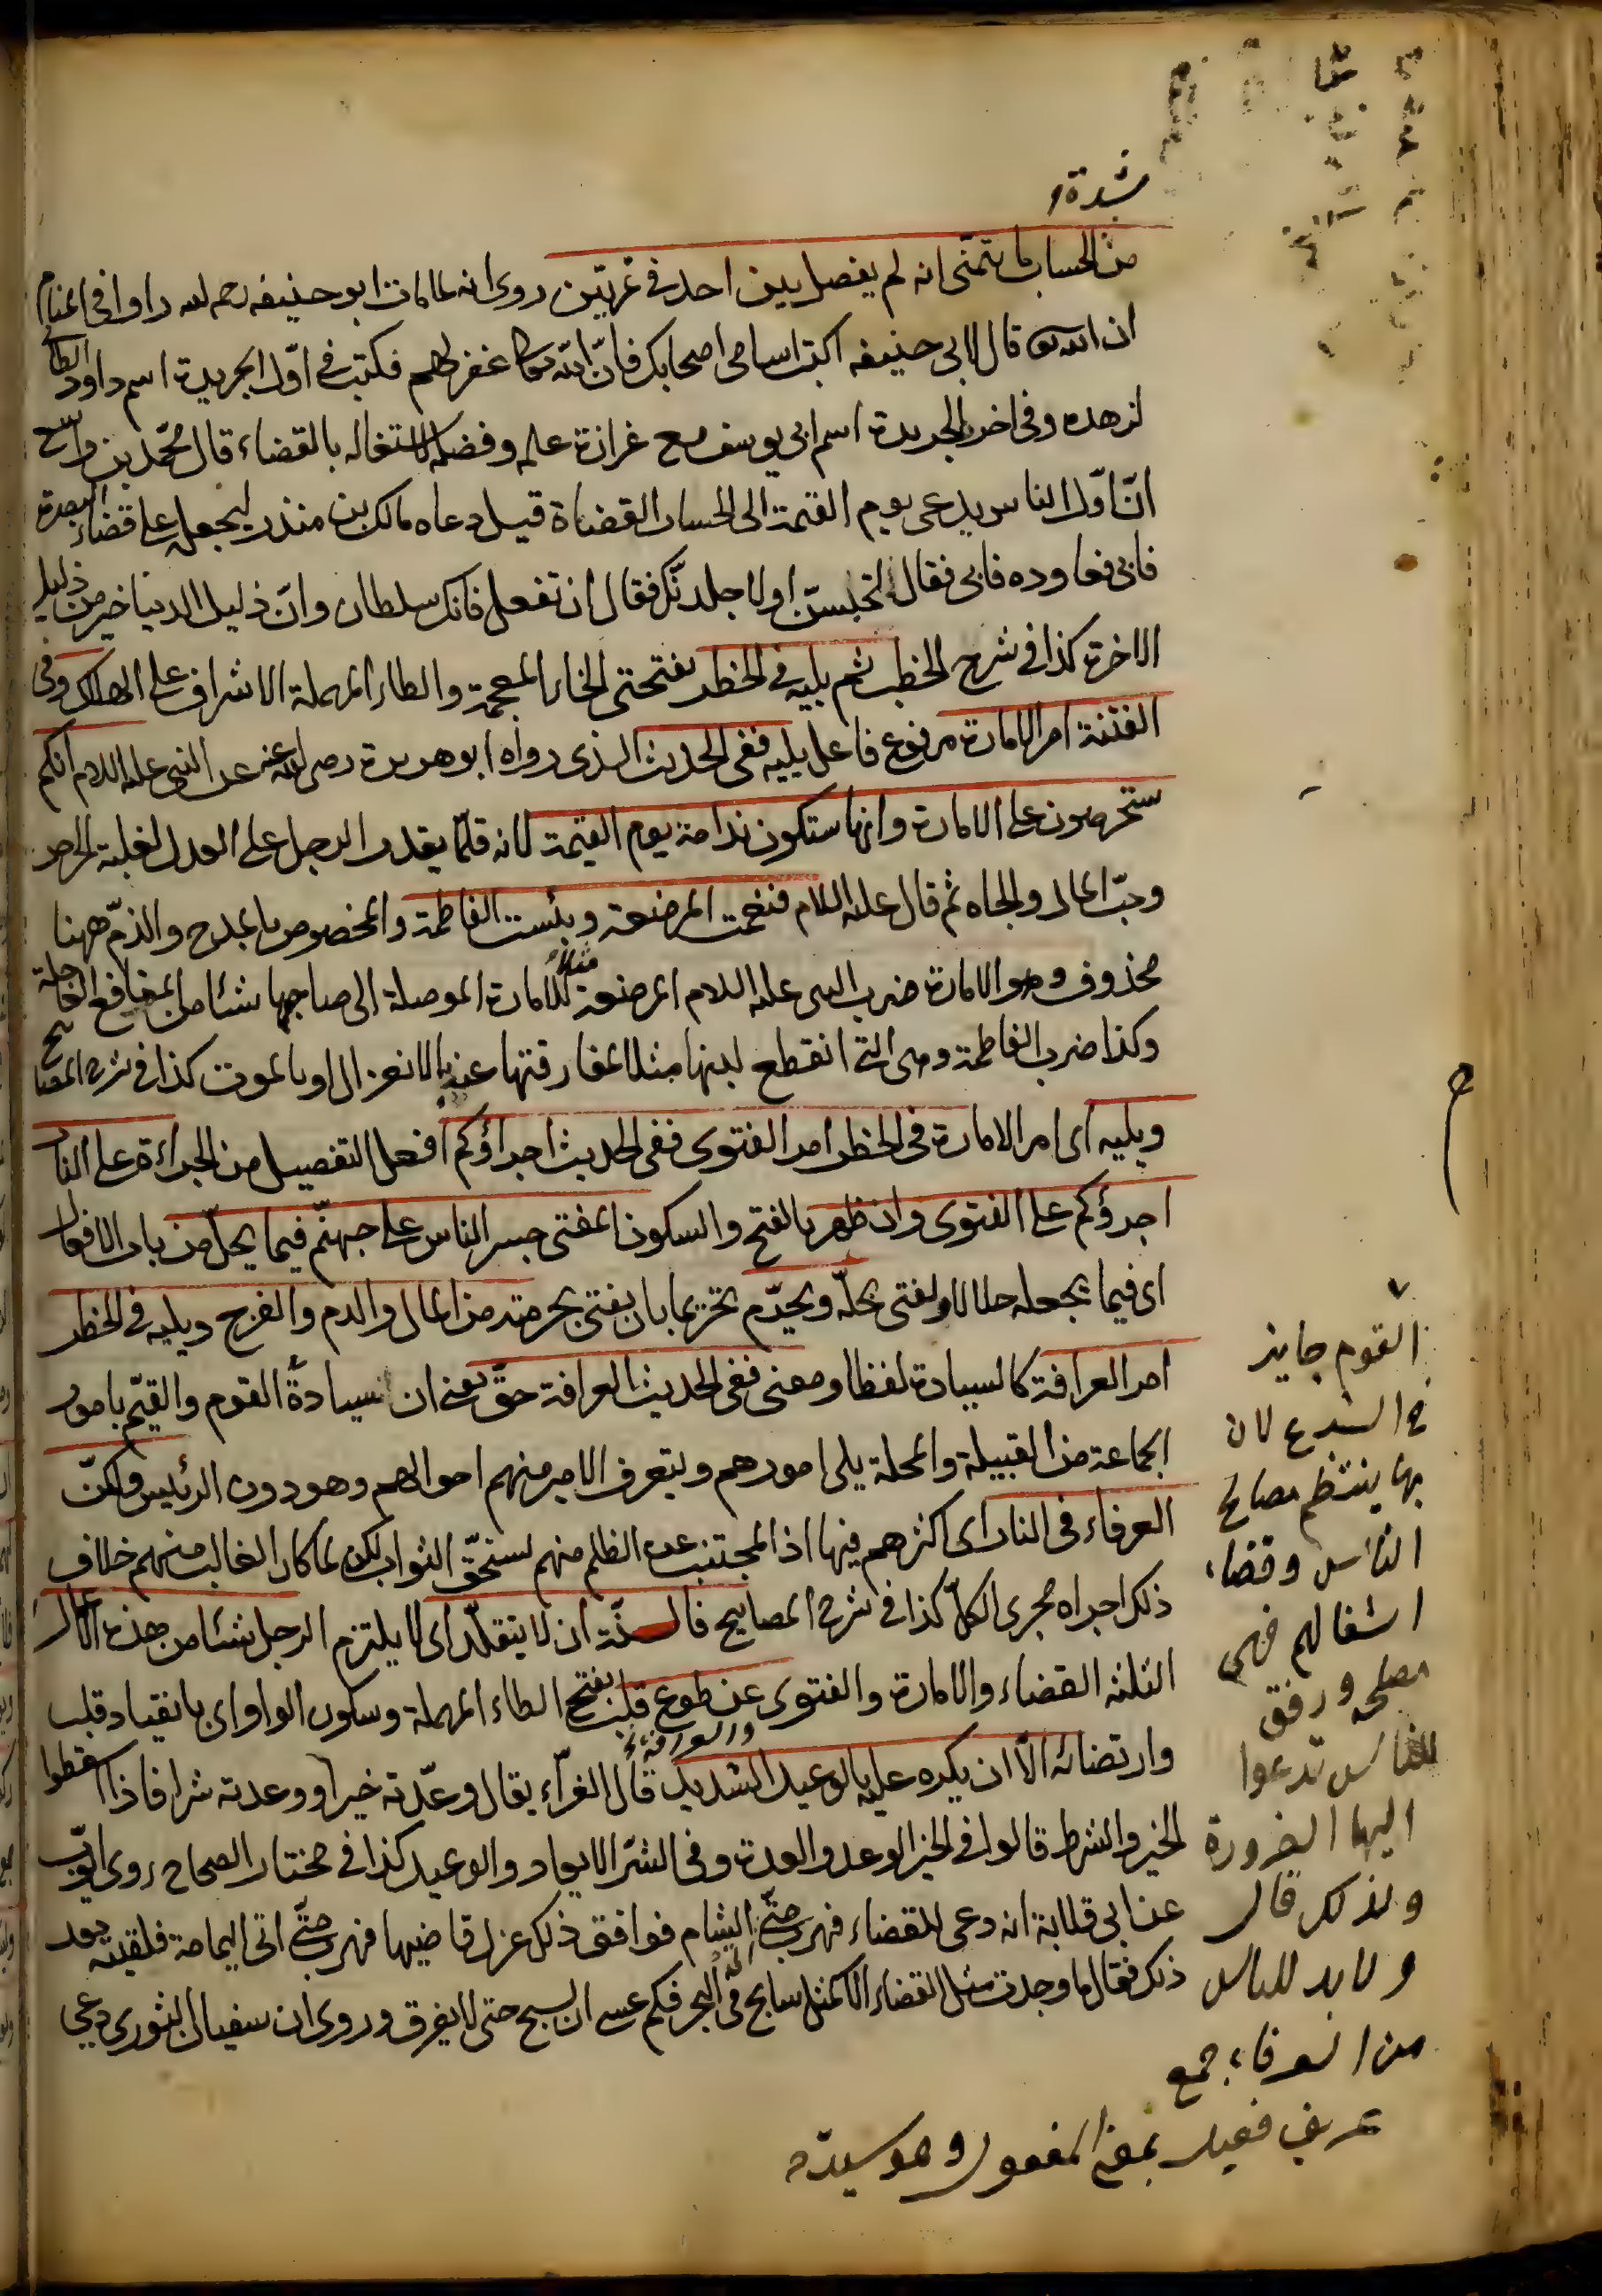 شدة
من الحساب ما يتمنى انه لم يفصل بين احد في تمرتين روى انه لما مات ابو حنيفه رحمه الله راوا في المنام
ان الله تعا قال لابي حنيفه اكتب اسامى اصحابك فانّ الله تعا غفر لهم فكتب في اوّل الجريدة اسم داود الطائى
لزهده وفي اخر الجريدة اسم ابي يوسف مع غرازة علمه وفضله لاشتغاله بالقضاء قال محمّد بن واسع
انّ اوّل الناس يدعى يوم القيمة الى الحساب القضاة قيل دعاه مالك بن منذر ليجعله على قضاء البصرة
فابى فعاوده فابى فقال لتجلسنّ اولا جلدنّك فقال ان تفعل فانك سلطان وانّ ذليل الدنيا خير من ذليل
الاخرة كذا في شرح الخطب ثم يليه في الخطر بفتحتى الخاء المعجمة والطاء المهملة الاشراف على الهلاك وفى
الفتنة امر الامارة مرفوع فاعل يليه ففى الحديث الذى رواه ابو هريرة رضى الله عنه عن النبى عليه السلام انكم
ستحرصون على الامارة وانها ستكون ندامة يوم القيمة لانه قلّما يقدر الرجل على العدل لغلبة الحرص
وحبّ المال والجاه ثم قال عليه السلام فنعمت المرضعة وبئست الفاطمة والمخصوص بالمدح والذمّ ههنا
محذوف وهو الامارة ضرب النبى عليه السلام المرضعة مثلا للامارة الموصلة الى صاحبها شئا من المنافع العاجلة
وكذا ضرب الفاطمة وهى التى انقطع لبنها مثلا لمفارقتها عنه بالانعزال او بالموت كذا في شرح المصابيح
ويليه اى امر الامارة في الخطر امر الفتوى ففى الحديث اجراؤكم افعل التفضيل من الجراءة على النار
اجرؤكم على الفتوى وان ظهر بالفتح والسكون المفتى جسر الناس على جهنّم فيما يحلّ من باب الافعال
اى فيما يجعله حلالا ويفتى بحلّه ويحرّم تحريما بان يفتى بحرمته من المال والدم والفرج ويليه في الخطر
امر العرافة كالسيادة لفظا ومعنى ففى الحديث العرافة حقّ يعنى ان سيادة القوم والقيّم بامور
الجماعة من القبيلة والمحلة يلى امورهم ويتعرف الامير منهم احوالهم وهو دون الرئيس ولكنّ
العرفاء في النار اى اكثرهم فيها اذ المجتنب عن الظلم منهم يستحقّ الثواب لكن لما كان الغالب منهم خلاف
ذلك اجراه مجرى الكلّ كذا في شرح المصابيح فالسنّة ان لا يتقلّد اى لا يلتزم الرجل شئا من هذه الاعمال
الثلثة القضاء والامارة والفتوى عن طوع قلب بفتح الطاء المهملة وسكون الواو اى بانقياد قلب
والعرافة
وارتضائه الاّ ان يكره عليه بالوعيد الشديد قال الفرّاء يقال وعّدته خيرا ووعدته شرا فاذا اسقطوا
الخير والشر قالوا في الخير الوعد والعدة وفي الشرّ الايعاد والوعيد كذا في مختار الصحاح روى ايّوب
عن ابي قلابة انه دعى للقضاء فهرب حتّى اتى الشام فوافق ذلك عزل قاضيها فهرب حتّى اتى اليمامة فلقيته بعد
ذلك فقال ما وجدت مثل القضاء الا كمثل سابح في البحر فكم عسى ان يسبح حتى لا يغرق وروى ان سفيان الثورى دعى
القوم جايز
في الشرع لان
بها ينتظم مصالح
الناس وقضاء
اشغالهم فهى
مصلحه ورفق
للناس تدعوا
اليها الضرورة
ولذلك قال
ولا بد للناس
من العرفاء جمع
عريف فعيل بمعنى المفعول وهو سيده